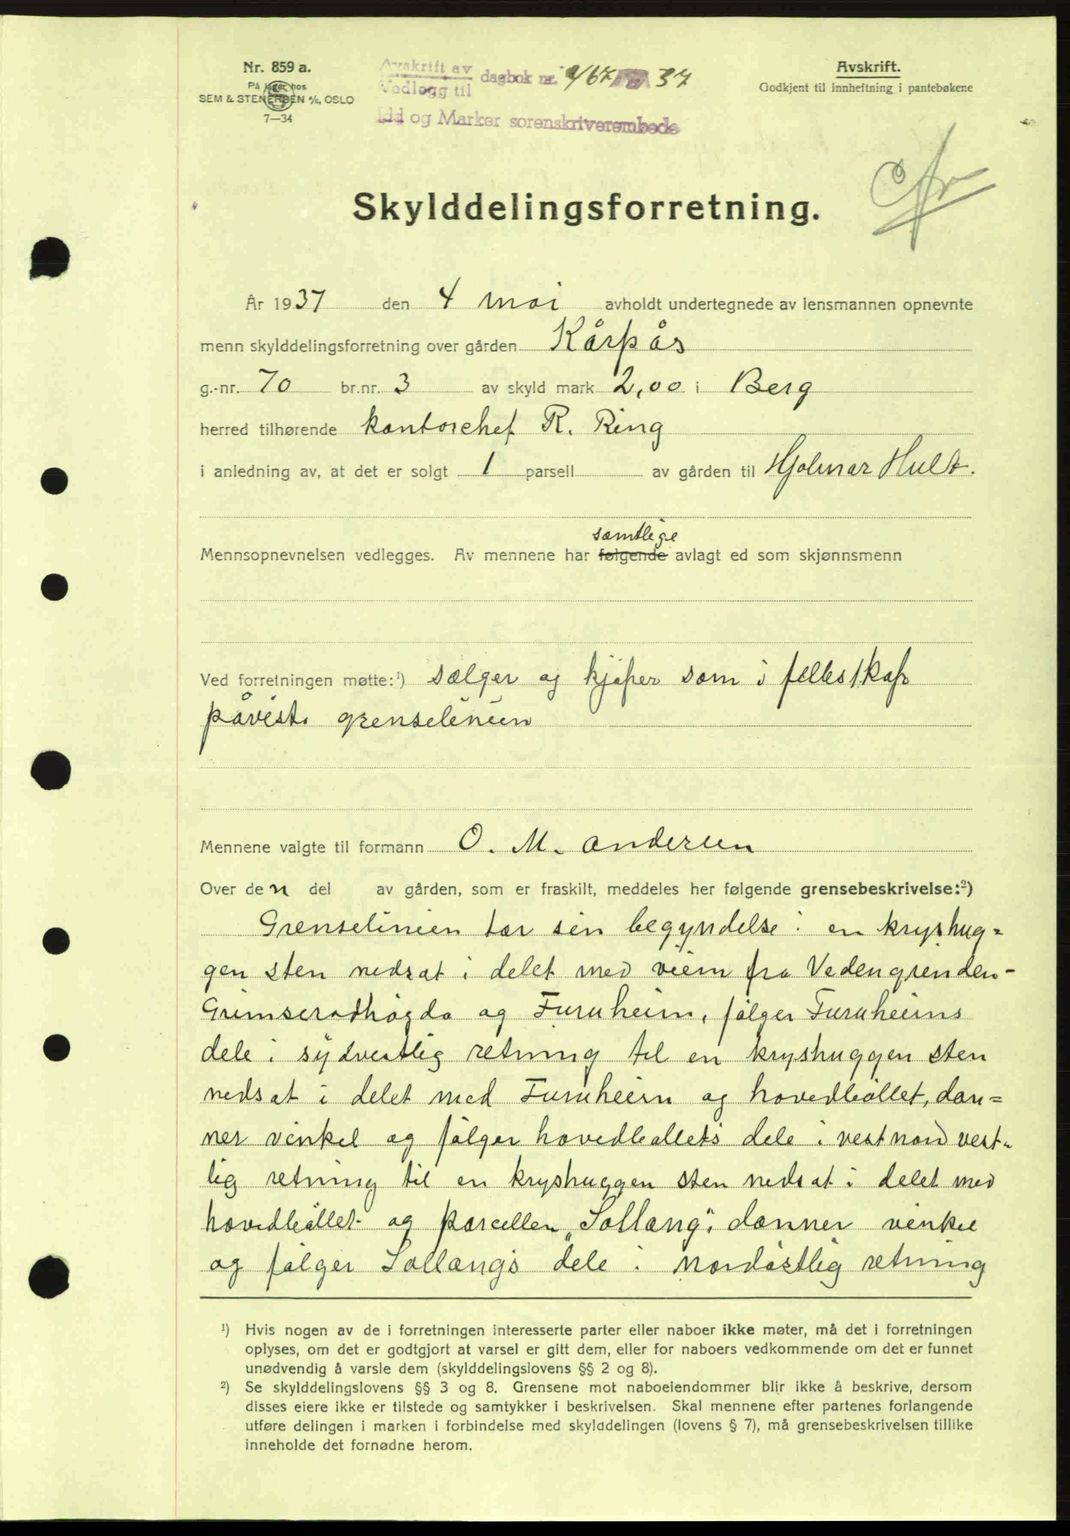 Nr. 859 a.
På lager hos
SEM & STENERSEN A/S, OSLO
7—34
Avskrift av
Vedlogg til
dagbok nr. 37
Idd og Marker sorenskriverembede
Avskrift.
Godkjent til innheftning i pantebøkene
Skylddelingsforretning.
År 1937 den 4 mai avholdt undertegnede av lensmannen opnevnte
menn skylddelingsforretning over gården Kårpås
g.-nr. 70 br.nr. 3 av skyld mark 2,00 i Berg
herred tilhørende kontorchef R. Ring
i anledning av, at det er solgt 1 parsell av gården til Hjalmar Hult.
samtlige
Mennsopnevnelsen vedlegges. Av mennene har følgende avlagt ed som skjønnsmenn
Ved forretningen møtte:¹) sælger og kjøper som i fellesskap
påviste grenselinien
Mennene valgte til formann O. M. Andersen
Over den del av gården, som er fraskilt, meddeles her følgende grensebeskrivelse:²)
Grenselinien tar sin begyndelse i en kryshug=
gen sten nedsat i delet med veiem fra Vedengrenden-
Grimsrødhøgda og Furuheim, følger Furuheims
dele i sydvestlig retning til en kryshuggen sten
nedsat i delet med Furuheim og hovedbøllet, dan=
ner vinkel og følger hovedbøllets dele i vestnordvest=
lig retning til en kryshuggen sten nedsat i delet med
hovedbøllet og parcellen „Sollang", danner vinkel
og følger Sollangs dele i nordøstlig retning
¹) Hvis nogen av de i forretningen interesserte parter eller naboer ikke møter, må det i forretningen
oplyses, om det er godtgjort at varsel er gitt dem, eller for naboers vedkommende om det er funnet
unødvendig å varsle dem (skylddelingslovens §§ 2 og 8).
²) Se skylddelingslovens §§ 3 og 8. Grensene mot naboeiendommer blir ikke å beskrive, dersom
disses eiere ikke er tilstede og samtykker i beskrivelsen. Skal mennene efter partenes forlangende
utføre delingen i marken i forbindelse med skylddelingen (lovens § 7), må grensebeskrivelsen tillike
inneholde det fornødne herom.